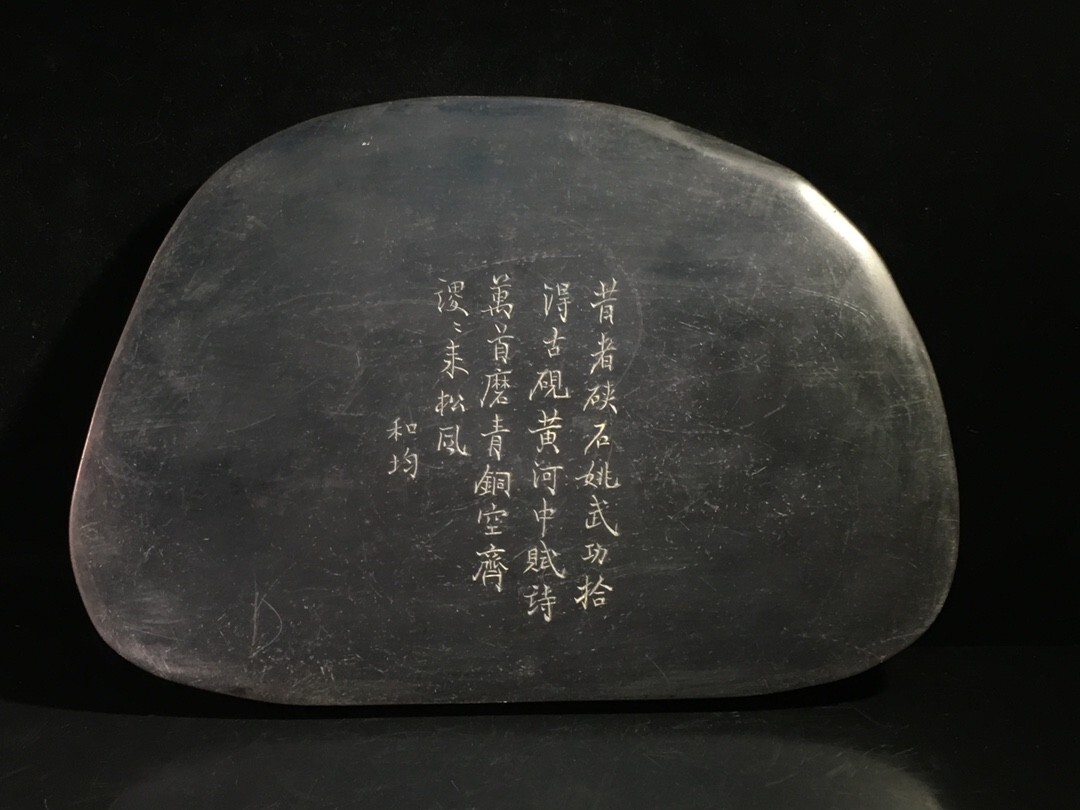 昔者硤石姚武功拾
得古硯黃河中賦詩
萬首磨青銅空齊
謖〻来松風
和均